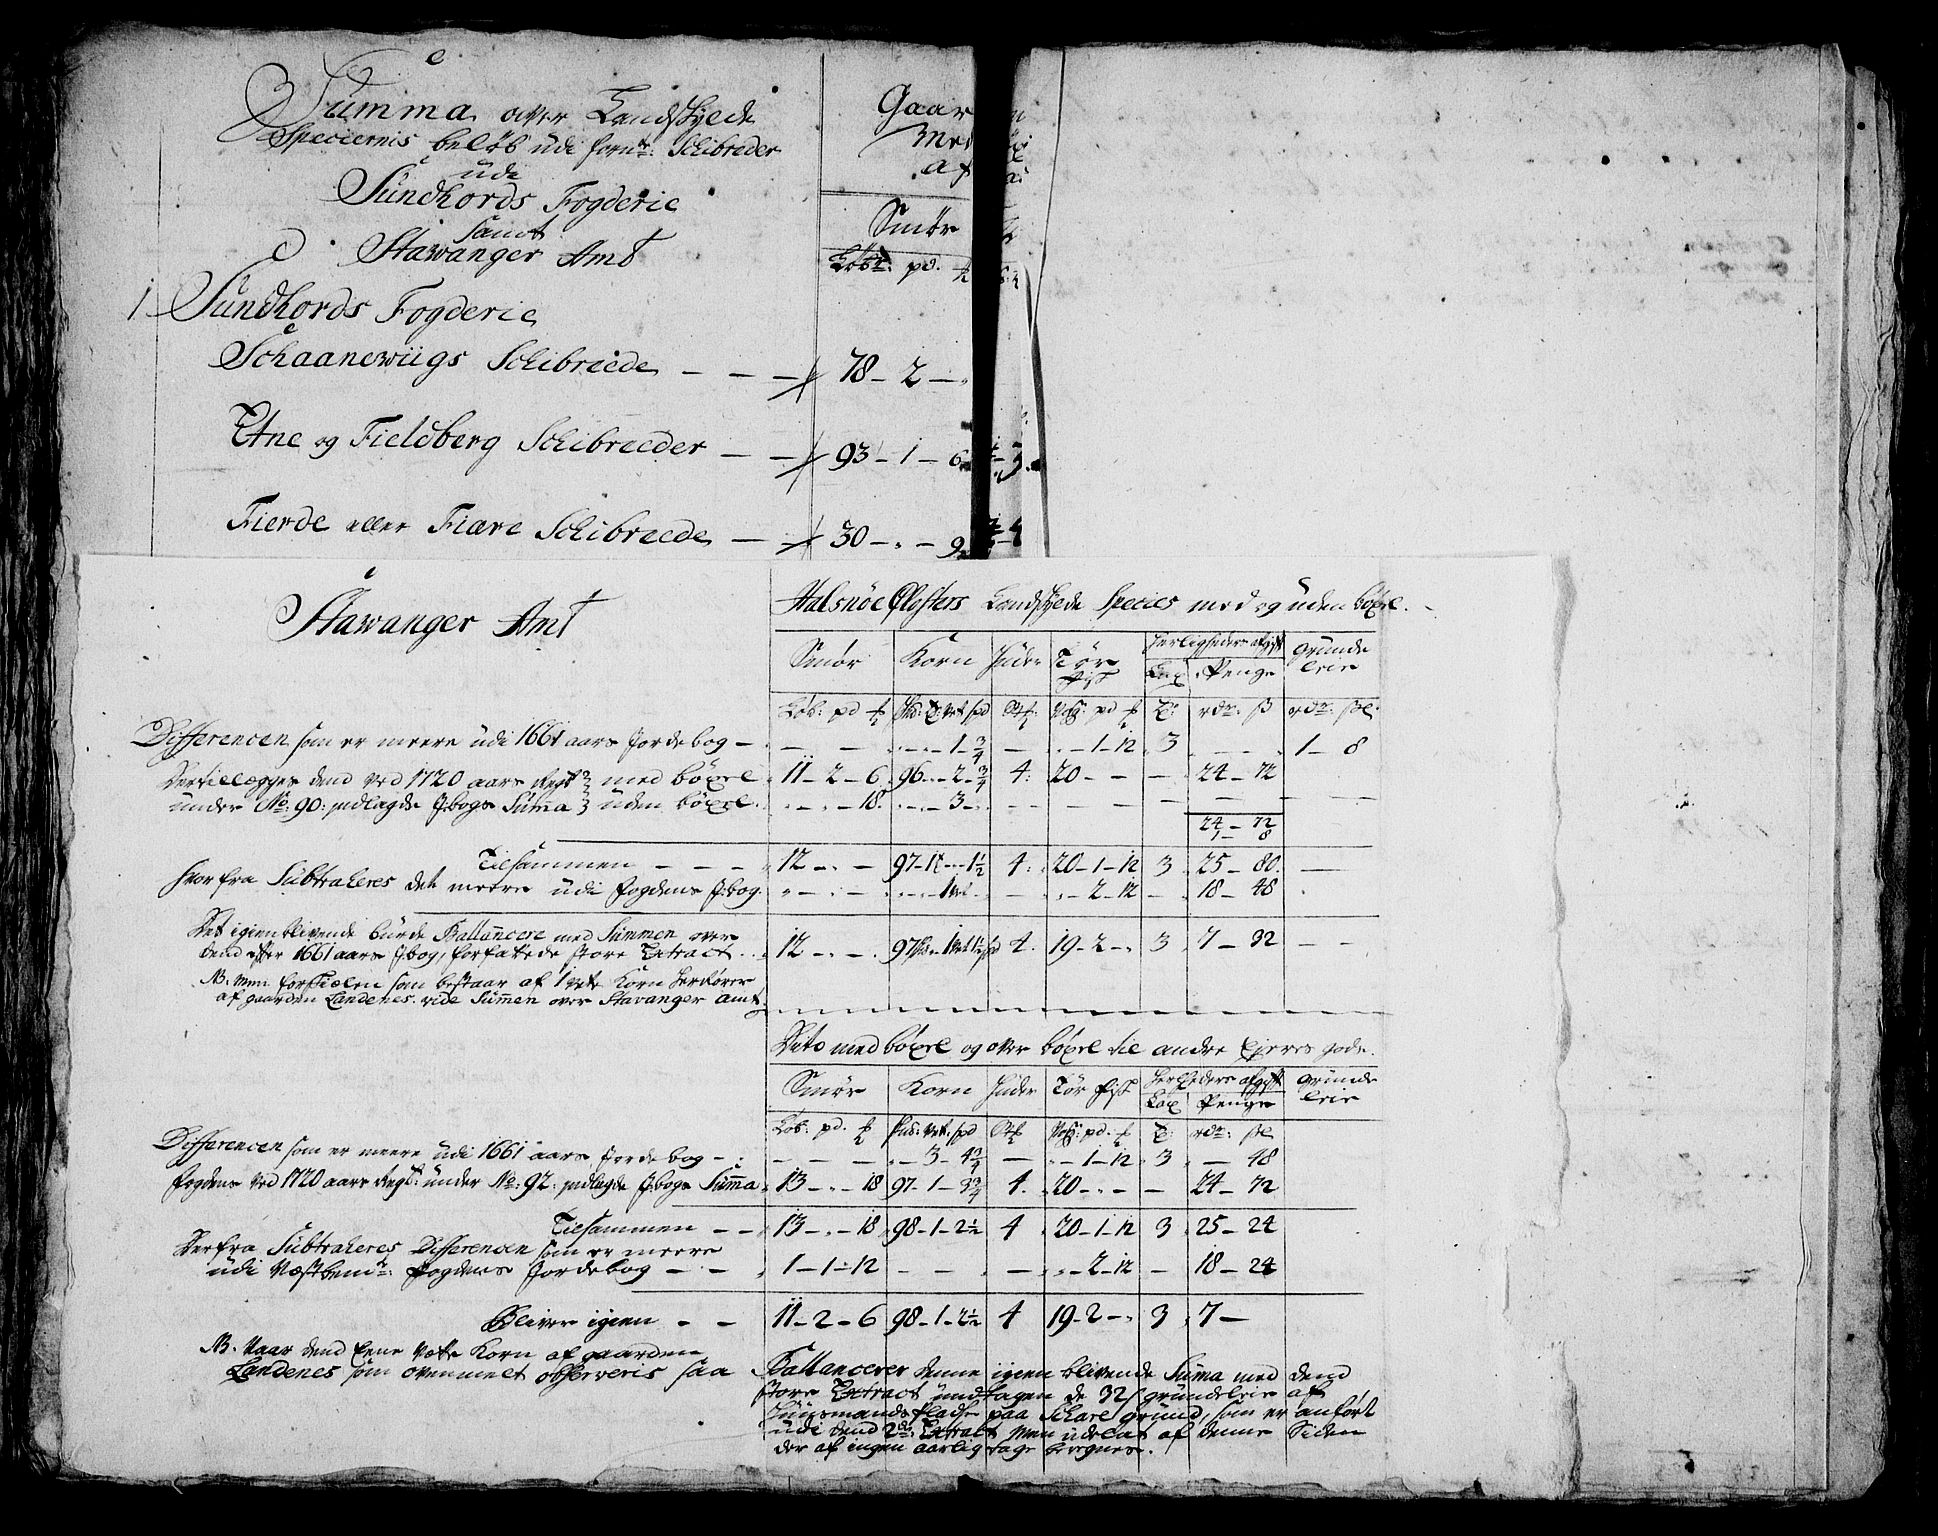 Summa over Landskylde
Speciernis beløb udi fornte: Schibreder
udi
Sundhords Fogderie
samt
Stawanger Amt
Gaar
Med
af
Smør
Løb: pd.
1 Sundhords Fogderie
Schaanewiigs Schibreede - - - 78 - 2 -
Etne og Fieldberg Schibreeder - - 93 - 1 - 6
Fierde eller Fiære Schibreede - - 30 - " - 9
Stawanger Amt
Halsnøe Closters Landskylde Species med og uden bøxel.
Smør Korn Huder Tør fisk Herligheders afgift Grunde leie
Lax Penge
Løb: pd
Differencen som er meere udi 1661 aars Jordebog - - - 1 - 3/4 - - 1 - 12 3 - 1 - 8
Dertilegges dend ved 1720 aars Regst med bøxel 11 - 2 - 6 96 - " - 2 - 3/4 4: 20 - - - 24 - 72
under No: 90: indlagde J:bogs Summa uden bøxel - " - 18. - " - 3 - - - - -
24 - 72
1 - 8
Tilsammen - - - 12 - " - 97 - 1 - 1 1/2 4: 20 - 1 - 12 3 25 - 80. -
Hvorfra Subtraheres det meere udi Fogdens J:bog. - - - - 2 - 12 - 18 - 48
Det igienblivende burde Ballancere med Summen over
dend efter 1661 aars J:bog, forfattede store Extract. 12 - " - 4. 19 - 2 - " 3 7 - 32 - -
NB: men forskielen som bestaar af 1 vet Korn herrører
af gaarden Landenes. vide Summen over Stavanger Amt
Dito med bøxel og over bøxel til andre Ejeres gods.
Smør Korn Huder Tør fisk Herlheders afgift Grunde leie
Lax Penge
Løb: pd. pd.
Differencen som er meere udi 1661 aars Jordebog - - - - - 3 - 4 3/4 - - 1 - 12 3 - 48
Fogdens ved 1720 aars Regst: under No: 92: indlagde J:bogs Summa 13 - " - 18 97 - 1 - 3 3/4 4. 20 - " - - 24 - 72
Tilsammen - - 13 - " - 18 98 - 1 - 2 1/2 4 20 - 1 - 12 3 25 - 24
Derfra Subtraheres Differencen som er meere
udi Næstbemte: Fogdens Jordebog - - 1 - 1 - 12 - - - - 2 - 12 - 18 - 24
Bliver igien - - 11 - 2 - 6 98 - 1 - 2 1/2 4 19 - 2 - " 3 7 -
NB. Naar dend Eene Vette Korn af gaarden
Landenes som ovenmelt observeris saa Ballancerer denne igien blivende Suma med dend
store Extract undtagen de 32 s grundeleie af
Huusmands Pladse paa Schare grund, som er anført
udi dend 2de: Extract men udelat af denne Siden
der af ingen aarlig tage beregnes.